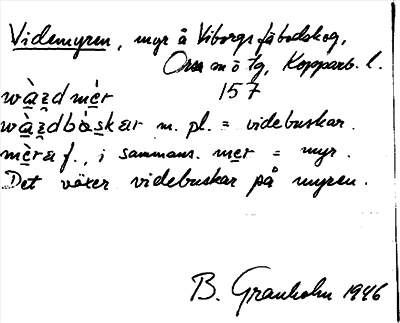 Videmyren, myr å Viborgs fäbodskog,
Orsa m ö tg, Kopparb. l.
wàzd mèr 157
wàzdbòskær m. pl. = videbuskar.
mèræ f., i sammans. mer = myr.
Det växer videbuskar på myren.
B. Granholm 1946